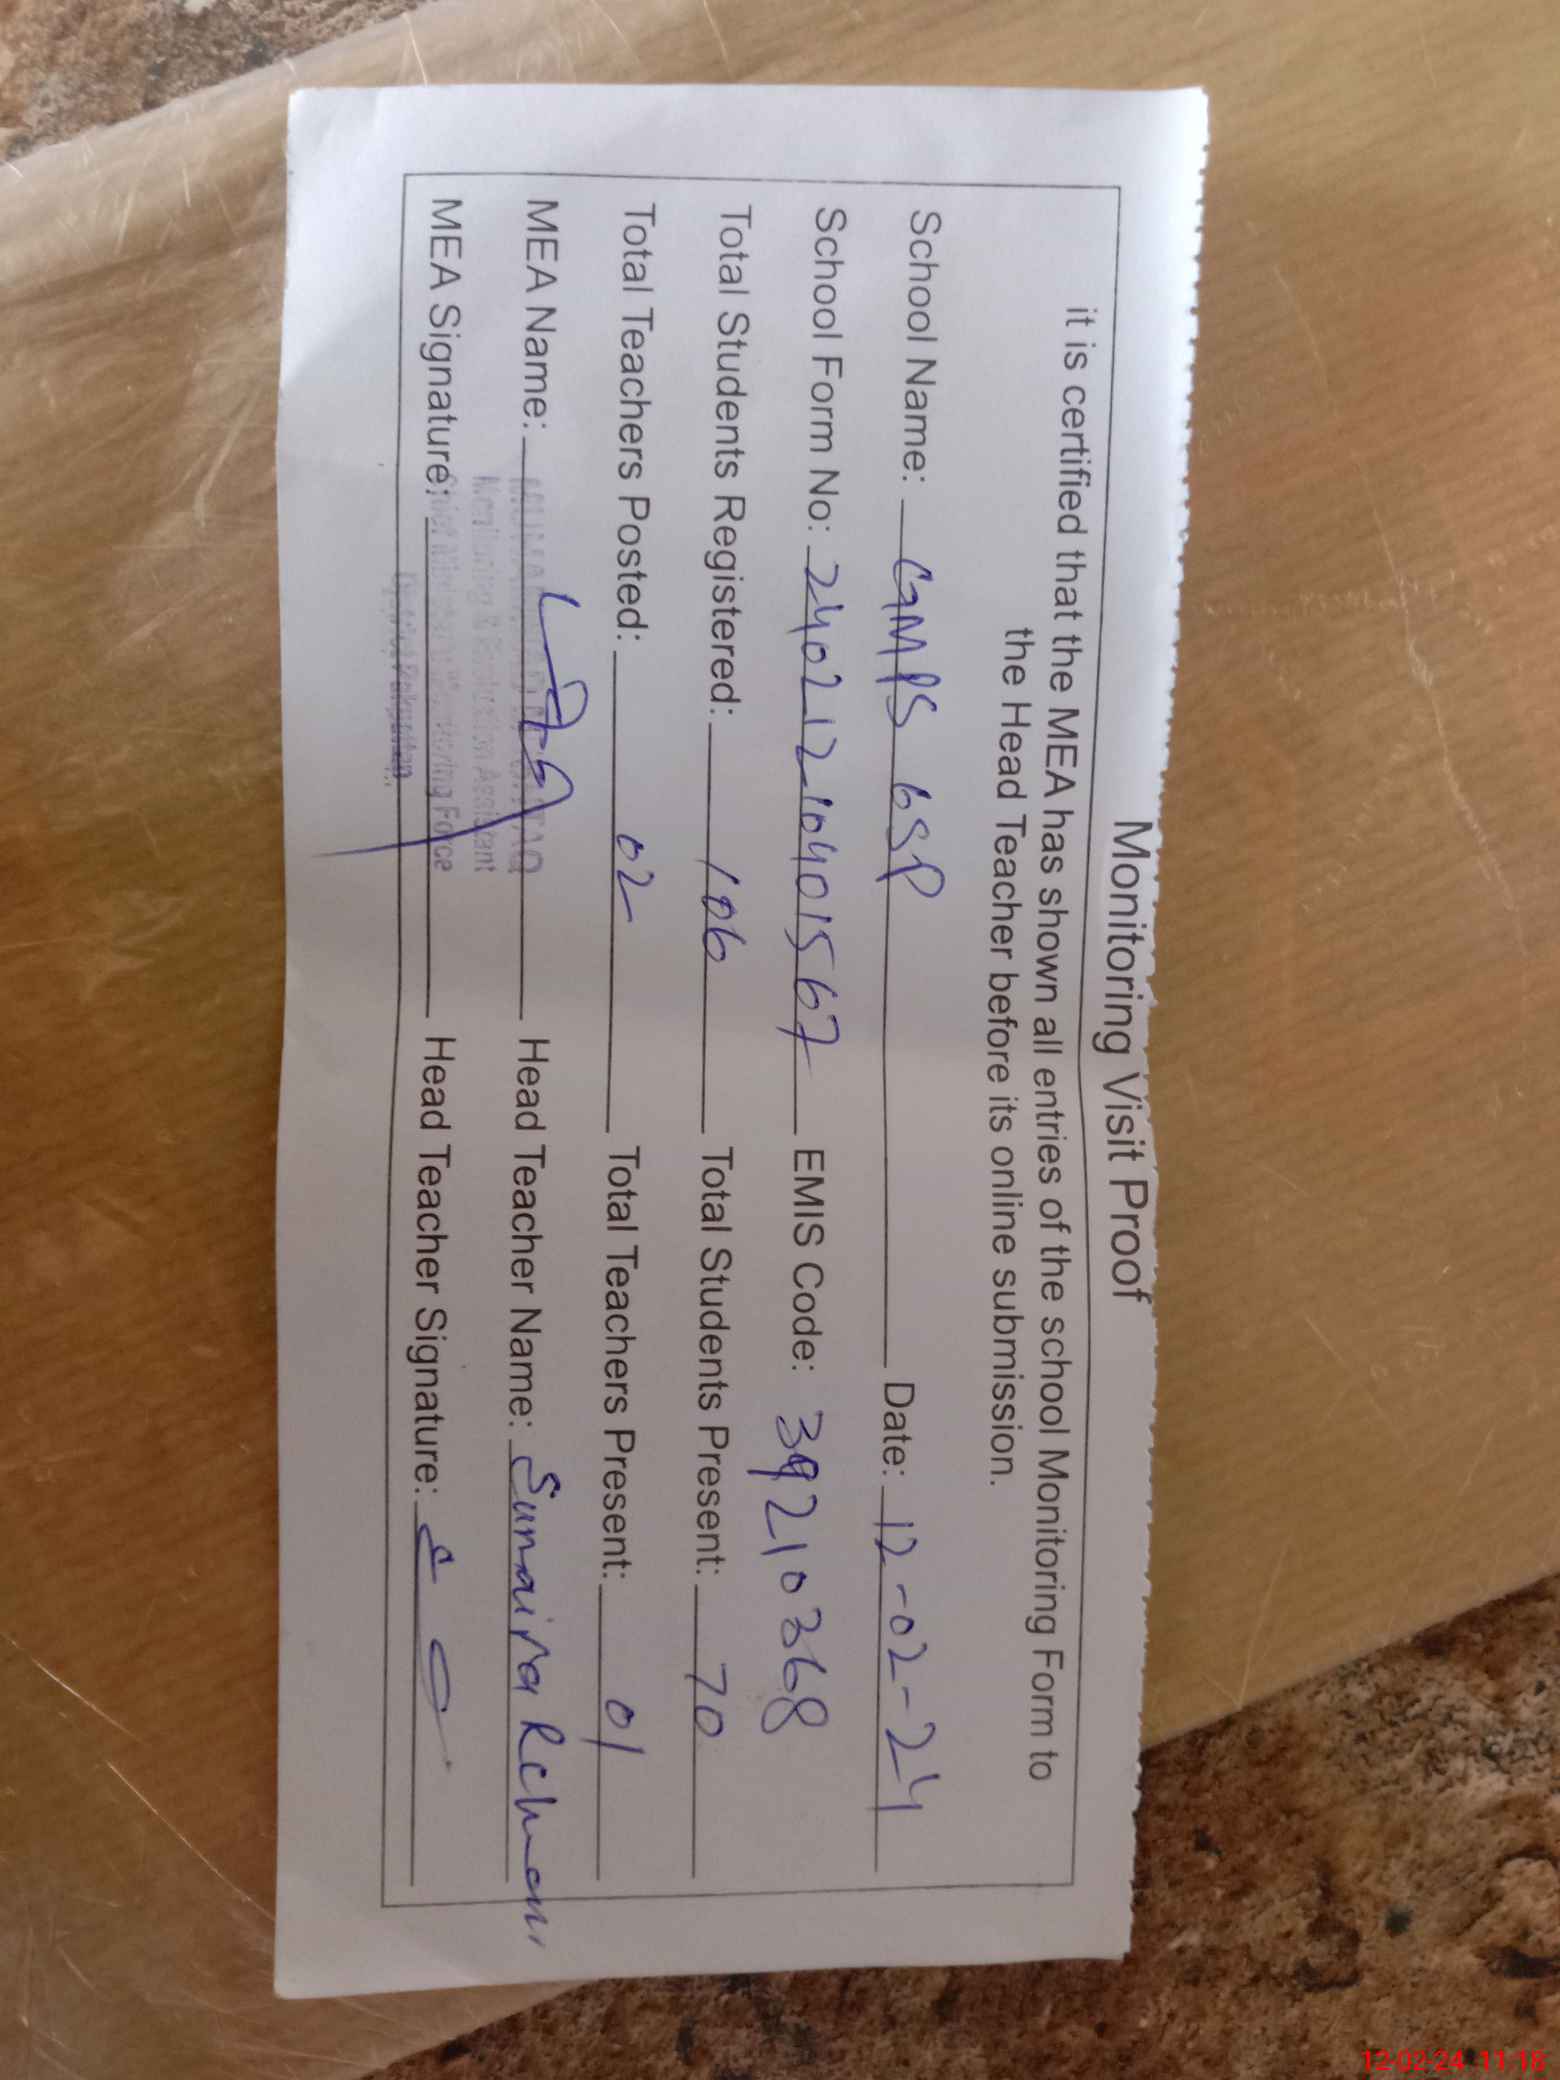 Monitoring Visit Proof
it is certified that the MEA has shown all entries of the school Monitoring Form to
the Head Teacher before its online submission.
School Name: GMPS 6SP Date: 12-02-24
School Form No: 24021210401567 EMIS Code: 39210368
Total Students Registered: 106 Total Students Present: 70
Total Teachers Posted: 02 Total Teachers Present: 01
MEA Name: Head Teacher Name: Sumaira Rehman
Monitoring & Evaluation Assistant
MEA Signature: Head Teacher Signature:
Monitoring Force
District Pakpattan
12-02-24 11:18